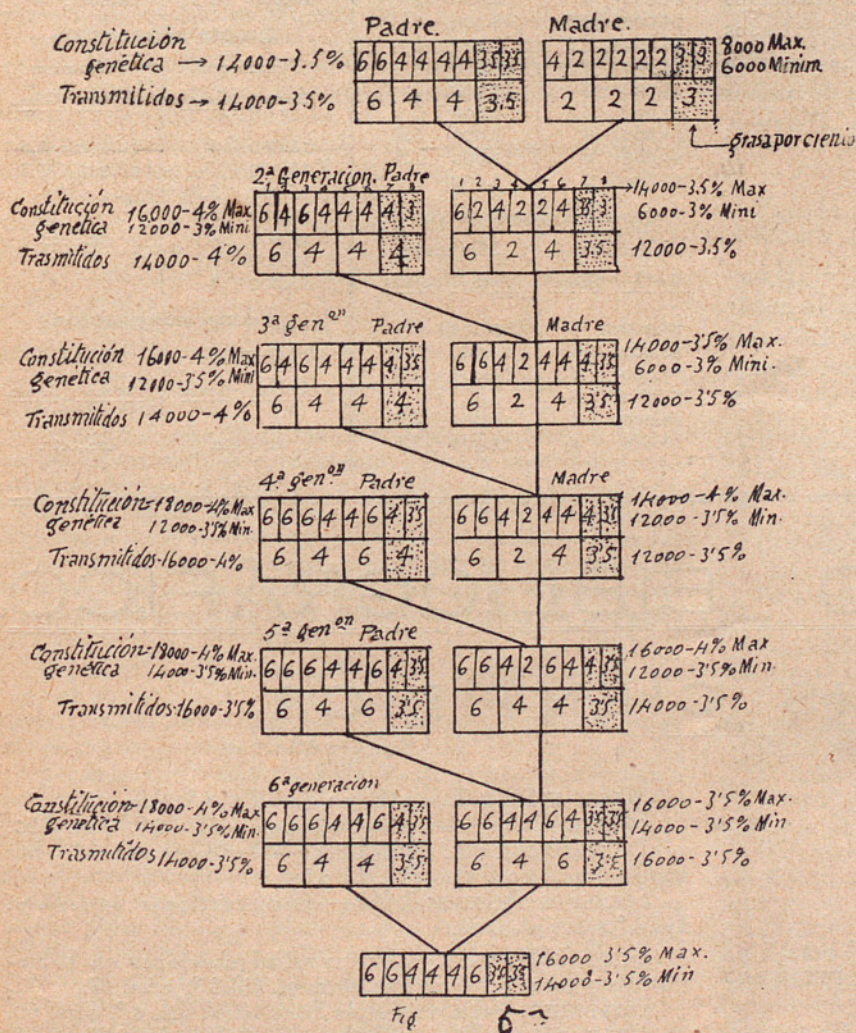 Padre. Madre.
Constitución genética → 14000-3.5% 6 6 4 4 4 4 3.5 3.5 4 2 2 2 2 2 3 3 8000 Max. 6000 Minim
Transmitidos → 14000-3.5% 6 4 4 3.5 2 2 2 3
grasa por ciento
2ª Generacion. Padre
1 2 3 4 5 6 7 8
Constitución genética 16000-4% Max 12000-3% Mini 6 4 6 4 4 4 4 3 6 2 4 2 2 4 3 14000-3.5% Max 6000-3% Mini
Trasmitidos 14000-4% 6 4 4 4 6 2 4 3.5 12000-3.5%
3ª genᵒⁿ Padre Madre
Constitución genética 16000-4% Max 12000-3'5% Mini 6 4 6 4 4 4 4 3.5 6 6 4 2 4 4 4 3.5 14000-3'5% Max. 6000-3% Mini.
Transmitidos 14000-4% 6 4 4 4 6 2 4 3'5 12000-3'5%
4ª genᵒⁿ Padre Madre
Constitución= genética 18000-4% Max. 12000-3'5% Min. 6 6 6 4 4 6 4 3.5 6 6 4 2 4 4 4 3.5 14000-4% Max. 12000-3'5% Min.
Transmitidos-16000-4% 6 4 6 4 6 2 4 3'5 12000-3'5%
5ª genᵒⁿ Padre
Constitución= genética 18000-4% Max. 14000-3'5% Min. 6 6 6 4 4 6 4 3.5 6 6 4 2 6 4 4 3.5 16000-4% Max 12000-3'5% Min.
Transmitidos-16000-3'5% 6 4 6 3'5 6 4 4 3'5 14000-3'5%
6ª generacion
Constitución- genética 18000-4% Max 14000-3'5% Min. 6 6 6 4 4 6 4 3.5 6 6 4 4 6 4 3.5 3.5 16000-3'5% Max. 14000-3'5% Min
Trasmitidos 14000-3'5% 6 4 4 3'5 6 4 6 3'5 16000-3'5%
6 6 4 4 4 6 3.5 3.5 16000 3'5% Max. 14000-3'5% Min
Fig 5